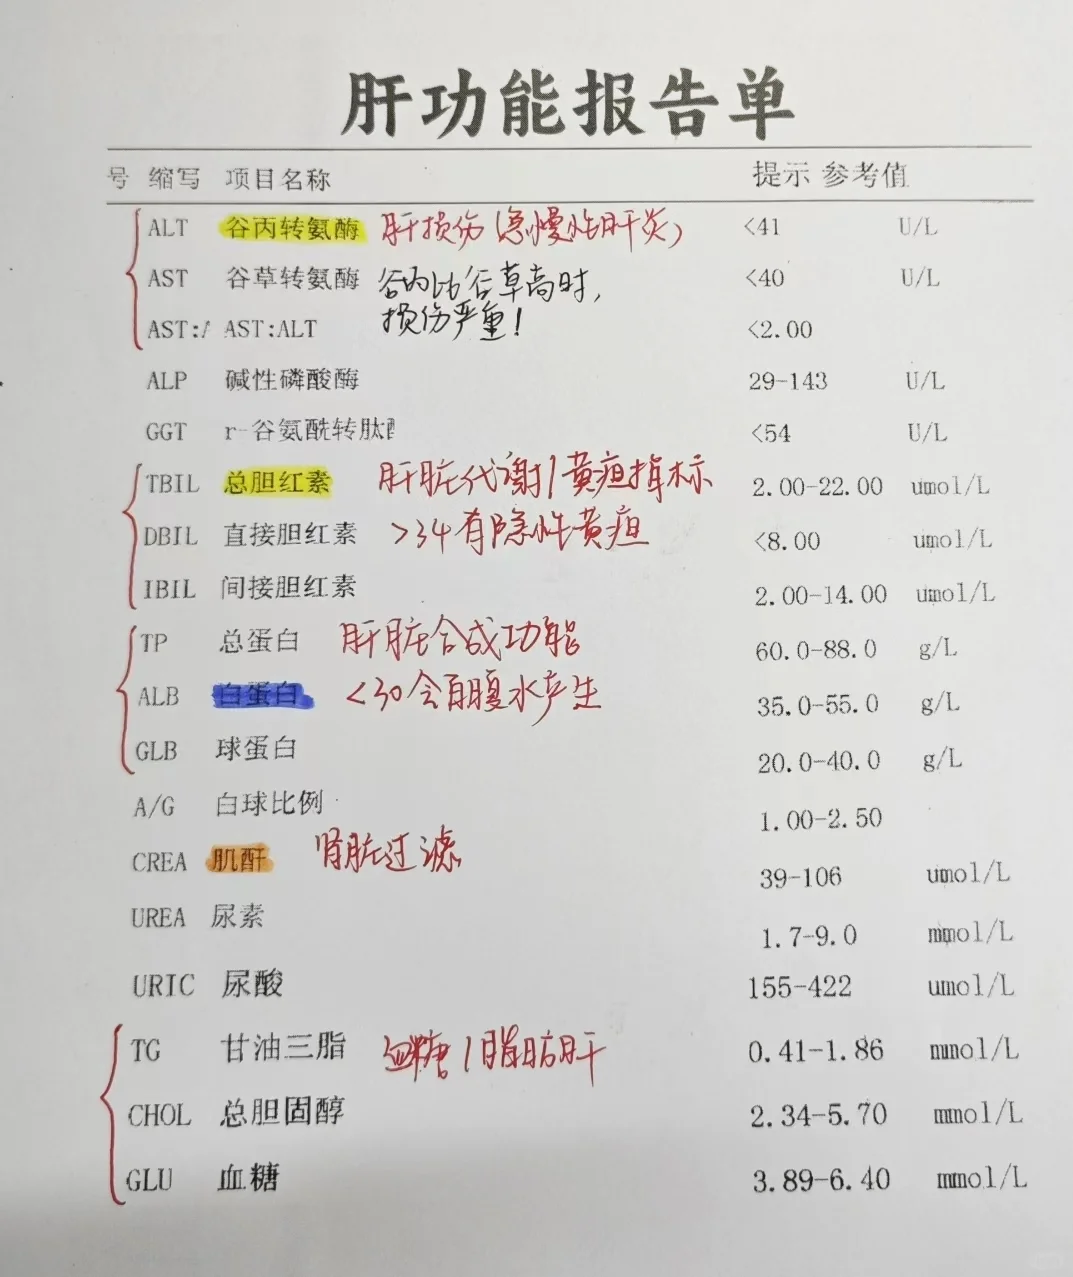 肝功能报告单
号 缩写 项目名称 提示 参考值
ALT 谷丙转氨酶 肝损伤(急慢性肝炎) <41 U/L
AST 谷草转氨酶 谷丙比谷草高时, <40 U/L
损伤严重!
AST:A AST:ALT <2.00
ALP 碱性磷酸酶 29-143 U/L
GGT r-谷氨酰转肽酶 <54 U/L
TBIL 总胆红素 肝脏代谢/黄疸指标 2.00-22.00 umol/L
DBIL 直接胆红素 >34有隐性黄疸 <8.00 umol/L
IBIL 间接胆红素 2.00-14.00 umol/L
TP 总蛋白 肝脏合成功能 60.0-88.0 g/L
ALB 白蛋白 <30会有腹水产生 35.0-55.0 g/L
GLB 球蛋白 20.0-40.0 g/L
A/G 白球比例 1.00-2.50
CREA 肌酐 肾脏过滤 39-106 umol/L
UREA 尿素 1.7-9.0 mmol/L
URIC 尿酸 155-422 umol/L
TG 甘油三脂 血糖/脂肪肝 0.41-1.86 mmol/L
CHOL 总胆固醇 2.34-5.70 mmol/L
GLU 血糖 3.89-6.40 mmol/L